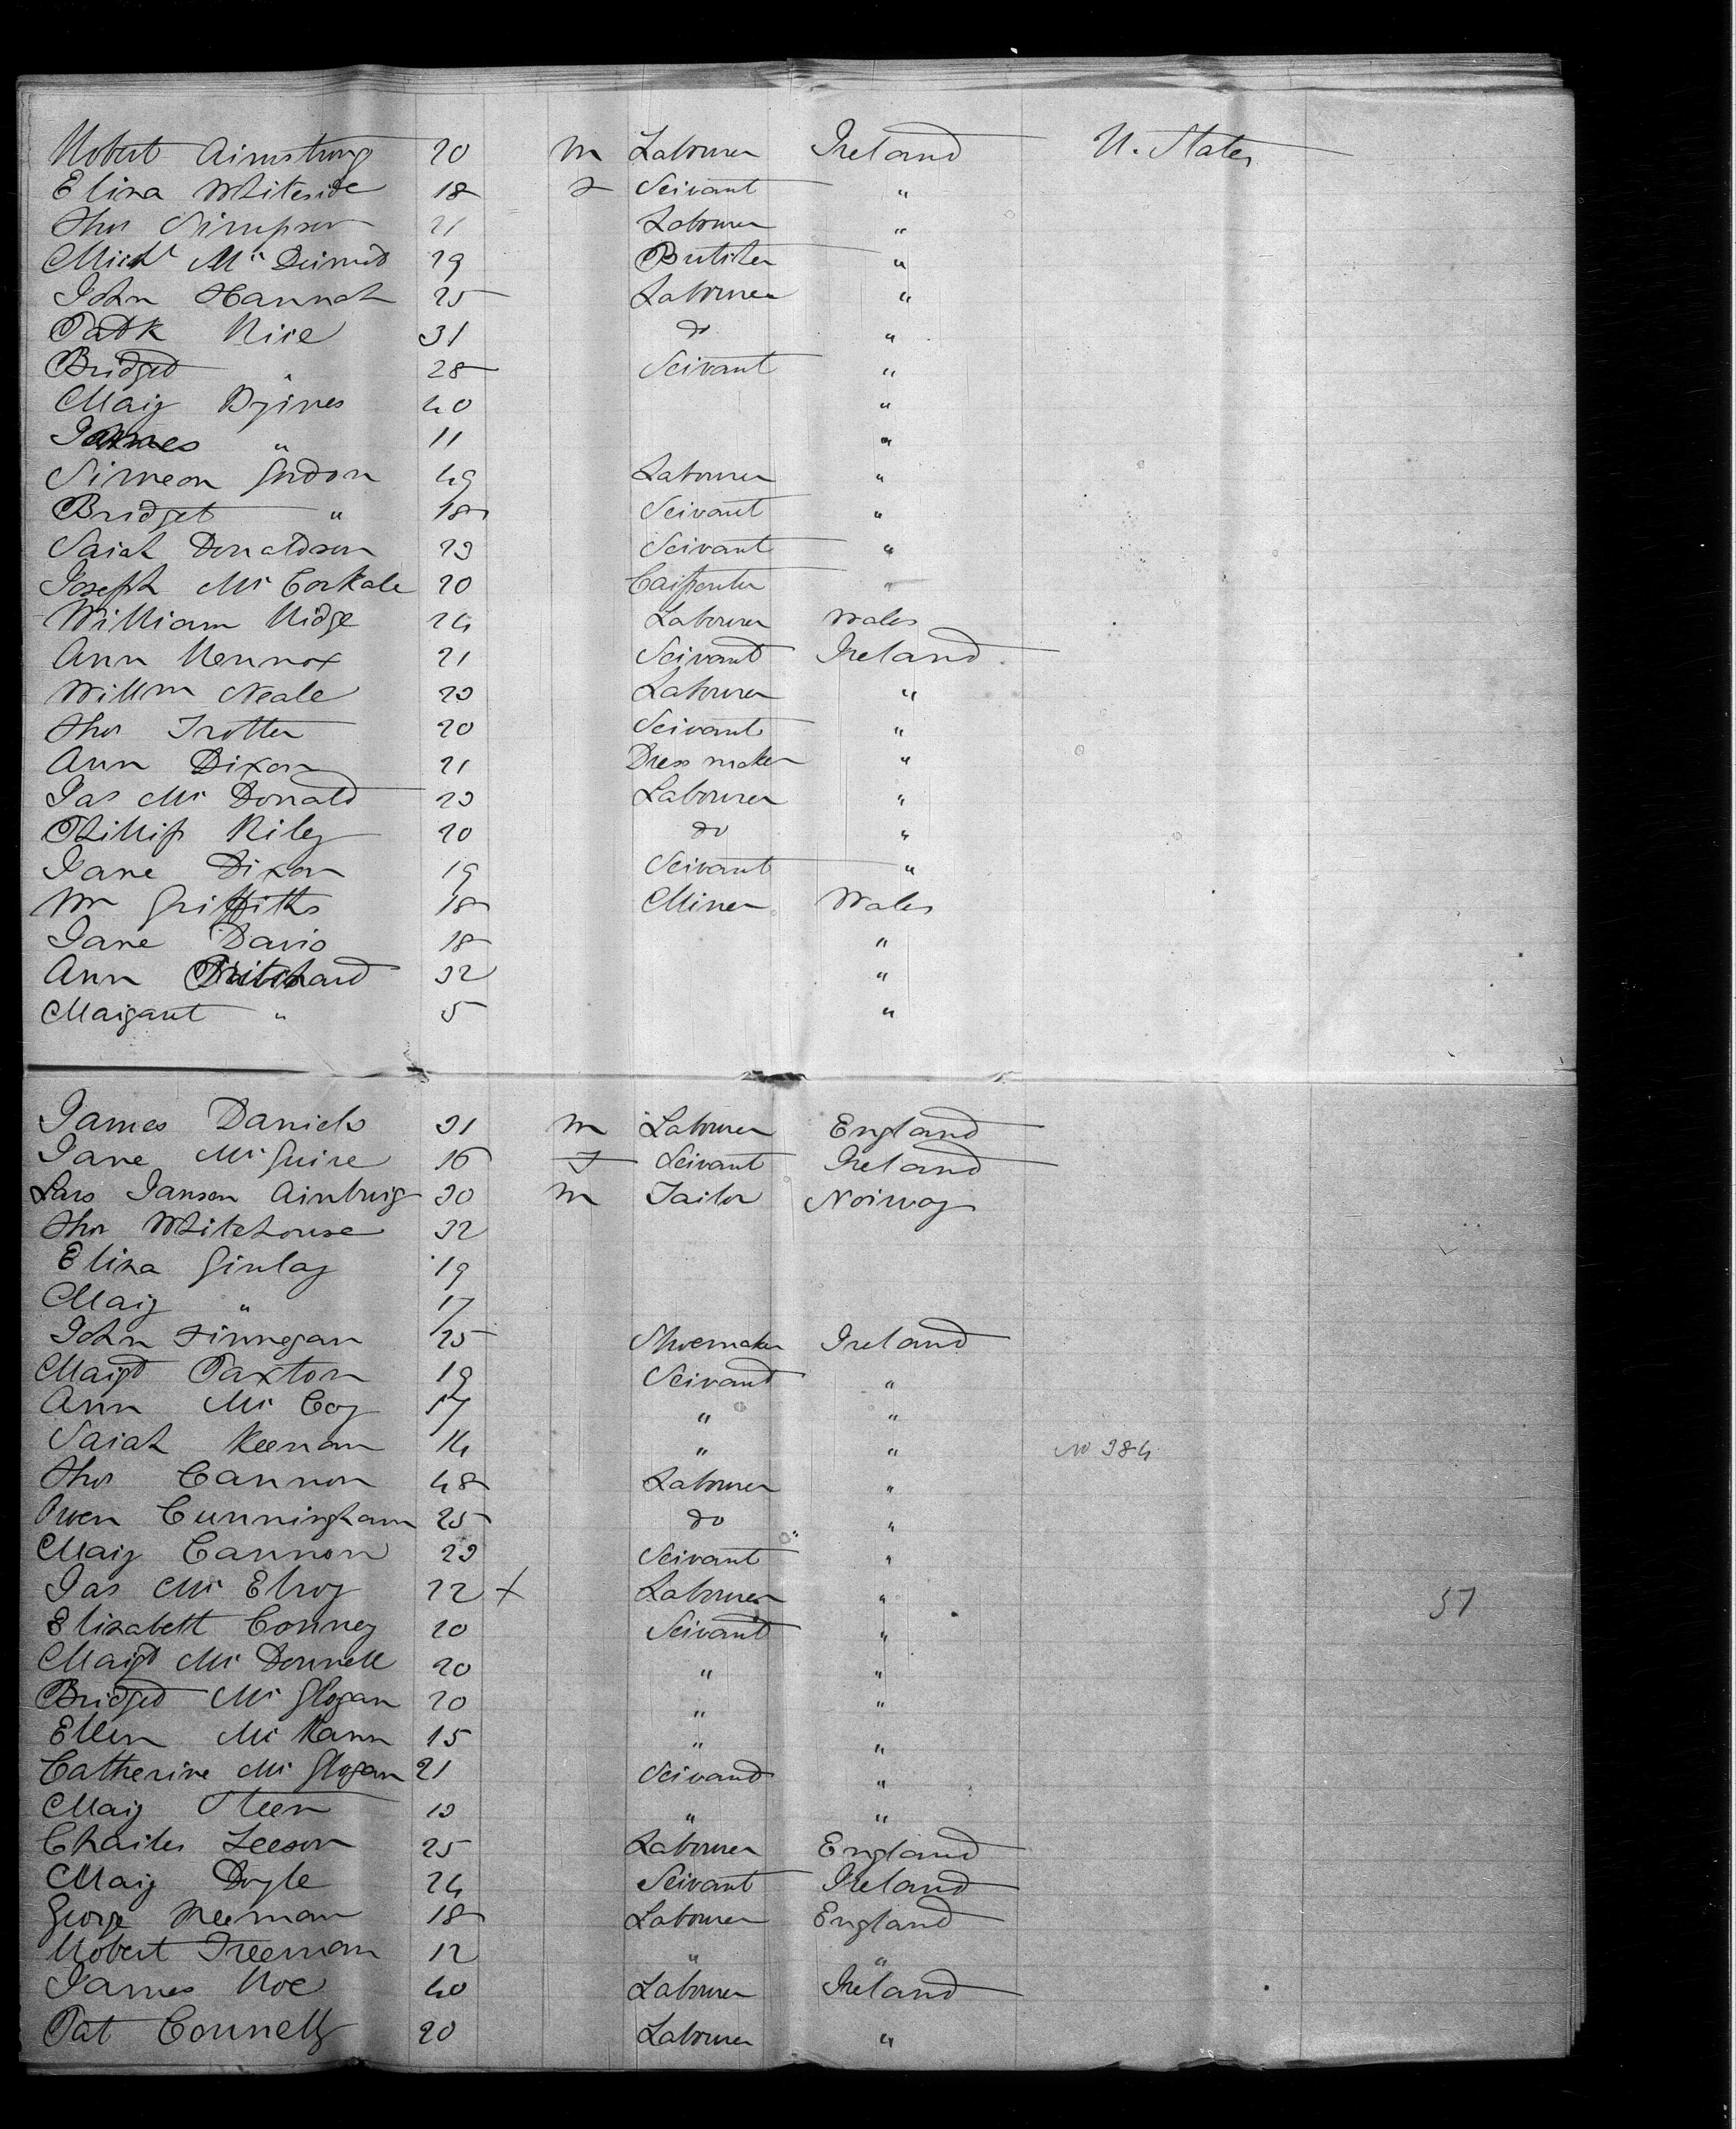 Robert Armstrong 20 m Labourer Ireland U. States
Eliza Whiteside 18 f Servant "
Thos Simpson 21 Labourer "
Michl McDermod 29 Butcher "
John Hannah 25 Labourer "
Patk Rice 31 do "
Bridget " 28 Servant "
Mary Byrnes 40 "
James " 11 "
Simeon Gordon 49 Labourer "
Bridget " 18 Servant "
Sarah Donaldson 23 Servant "
Joseph Mc Corkale 20 Carpenter "
William Ridge 24 Labourer Wales
Ann Rennox 21 Servant Ireland
Willm Neale 23 Labourer "
Thos Trotter 20 Servant "
Ann Dixon 21 Dress maker "
Jas Mc Donald 23 Labourer "
Phillip Riley 20 do "
Jane Dixon 19 Servant "
Wm Griffiths 18 Miner Wales
Jane Davis 18 "
Ann Pritchard 32 "
Margaret " 5 "
James Daniels 31 m Labourer England
Jane McGuire 16 f Servant Ireland
Lars Janson 30 m Tailor Norway
Thos Whitehouse 32
Eliza Ginlay 19
Mary " 17
John Finnegan 25 Shoemaker Ireland
Margt Paxton 19 Servant "
Ann Mc Coy 17 " "
Sarah Keenan 14 " " No 384
Thos Cannon 48 Labourer "
Owen Cunningham 25 do "
Mary Cannon 23 Servant "
Jas Mc Elroy 22 + Labourer " 57
Elizabeth Conney 20 Servant "
Margt Mc Donnell 20 " "
Bridget Mc Glogan 20 " "
Ellen Mc Kann 15 " "
Catherine Mc Glogan 21 Servant "
Mary Steen 13 " "
Charles Leeson 25 Labourer England
Mary Doyle 24 Servant Ireland
George Freeman 18 Labourer England
Robert Freeman 12 " "
James Roe 40 Labourer Ireland
Pat Connelly 20 Labourer "